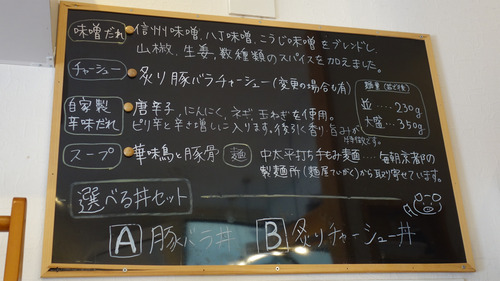 味噌だれ 信州味噌、八丁味噌、こうじ味噌をブレンドし、
山椒、生姜、数種類のスパイスを加えました。
チャーシュー 炙り豚バラチャーシュー(変更の場合も有)
麺量
並・・・・230g
大盛・・・350g
自家製
辛味だれ
唐辛子、にんにく、ネギ、玉ねぎを使用。
ピリ辛と辛さ増しに入ります。後引く香り、旨みが
特徴です。
スープ 華味鳥と豚骨
麺 中太平打ち手もみ麺‥‥毎朝京都の
製麺所(麺屋てゐがく)から取り寄せています。
選べる丼セット
A 豚バラ丼
B 炙りチャーシュー丼